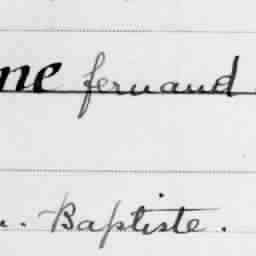 ne fernand
. Baptiste.